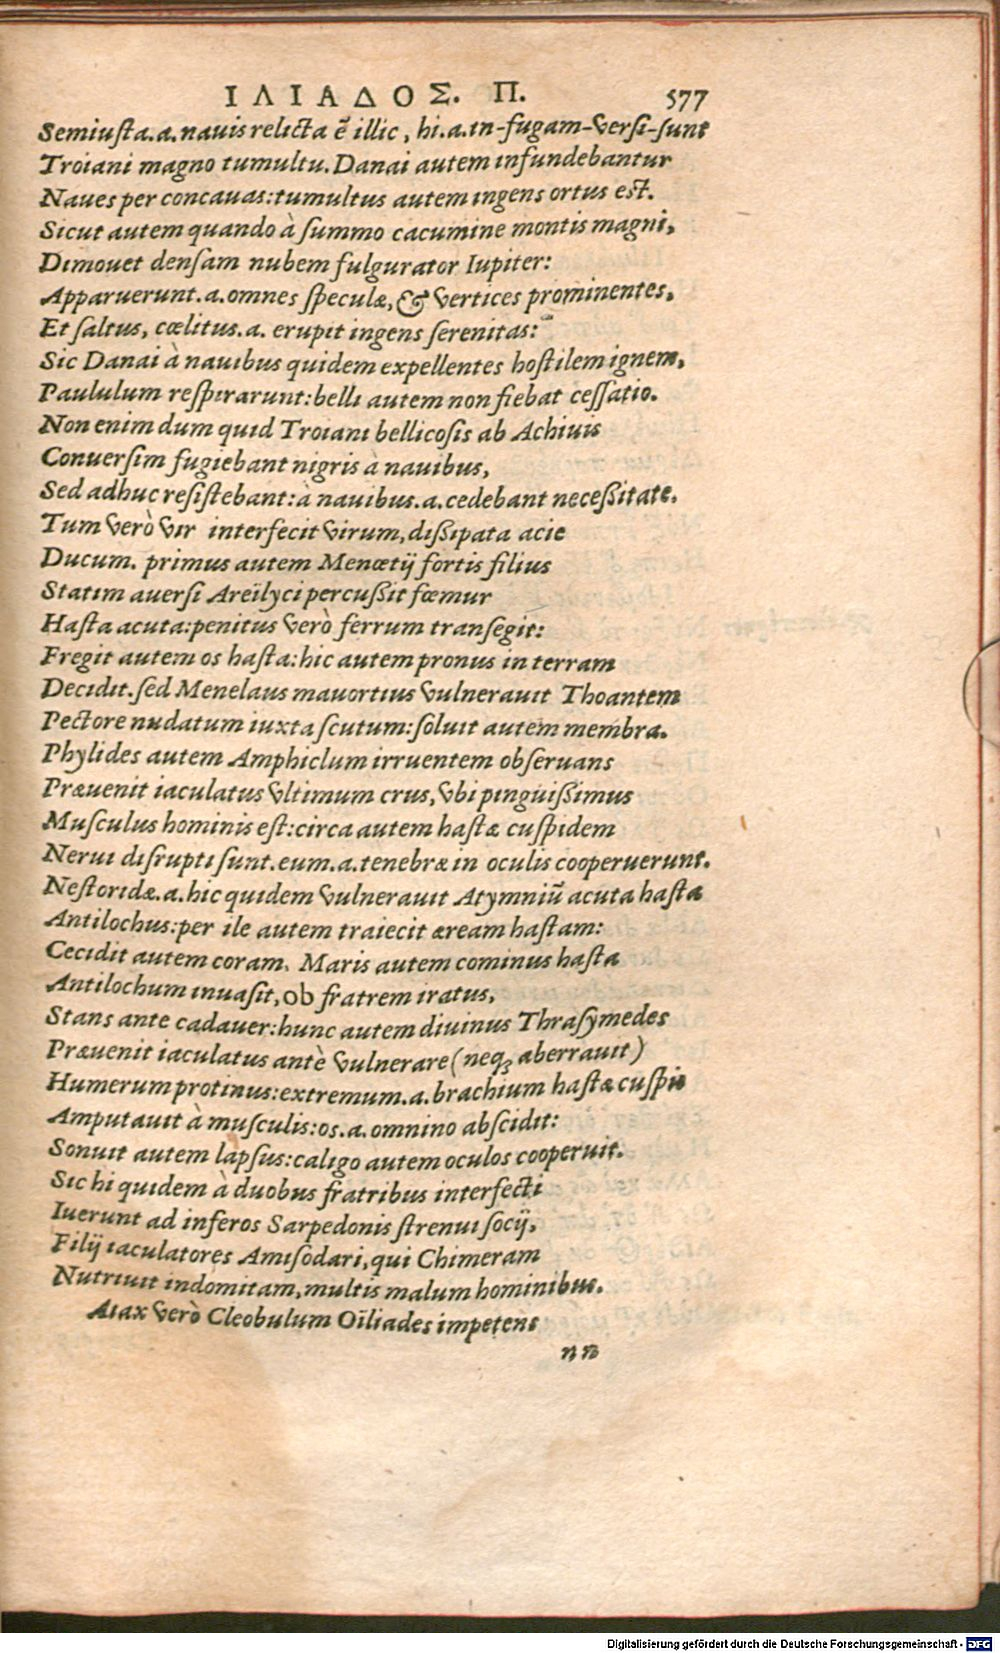 ΙΛΙΑΔΟΣ. Π. 577
Semiusta.a.nauis relicta ē illic, hi.a.in-fugam-versi-sunt
Troiani magno tumultu. Danai autem infundebantur
Naues per concauas: tumultus autem ingens ortus est.
Sicut autem quando à summo cacumine montis magni,
Dimouet densam nubem fulgurator Iupiter:
Apparuerunt.a.omnes speculæ, & vertices prominentes,
Et saltus, cœlitus.a. erupit ingens serenitas:
Sic Danai à nauibus quidem expellentes hostilem ignem,
Paululum respirarunt: belli autem non fiebat cessatio.
Non enim dum quid Troiani bellicosis ab Achiuis
Conuersim fugiebant nigris à nauibus,
Sed adhuc resistebant: à nauibus.a.cedebant necessitate.
Tum verò vir interfecit virum, dissipata acie
Ducum. primus autem Menœtij fortis filius
Statim auersi Areïlyci percussit fœmur
Hasta acuta: penitus verò ferrum transegit:
Fregit autem os hasta: hic autem pronus in terram
Decidit. sed Menelaus mauortius vulnerauit Thoantem
Pectore nudatum iuxta scutum: soluit autem membra.
Phylides autem Amphiclum irruentem obseruans
Præuenit iaculatus vltimum crus, vbi pinguissimus
Musculus hominis est: circa autem hastæ cuspidem
Nerui disrupti sunt. eum.a.tenebræ in oculis cooperuerunt.
Nestoridæ.a.hic quidem vulnerauit Atymniū acuta hasta
Antilochus: per ile autem traiecit æream hastam:
Cecidit autem coram. Maris autem cominus hasta
Antilochum inuasit, ob fratrem iratus,
Stans ante cadauer: hunc autem diuinus Thrasymedes
Præuenit iaculatus antè vulnerare (neqꝫ aberrauit)
Humerum protinus: extremum.a.brachium hastæ cuspis
Amputauit à musculis: os.a.omnino abscidit:
Sonuit autem lapsus: caligo autem oculos cooperuit.
Sic hi quidem à duobus fratribus interfecti
Iuerunt ad inferos Sarpedonis strenui socij,
Filij iaculatores Amisodari, qui Chimeram
Nutriuit indomitam, multis malum hominibus.
Aiax verò Cleobulum Oïliades impetens
nn
Digitalisierung gefördert durch die Deutsche Forschungsgemeinschaft - DFG